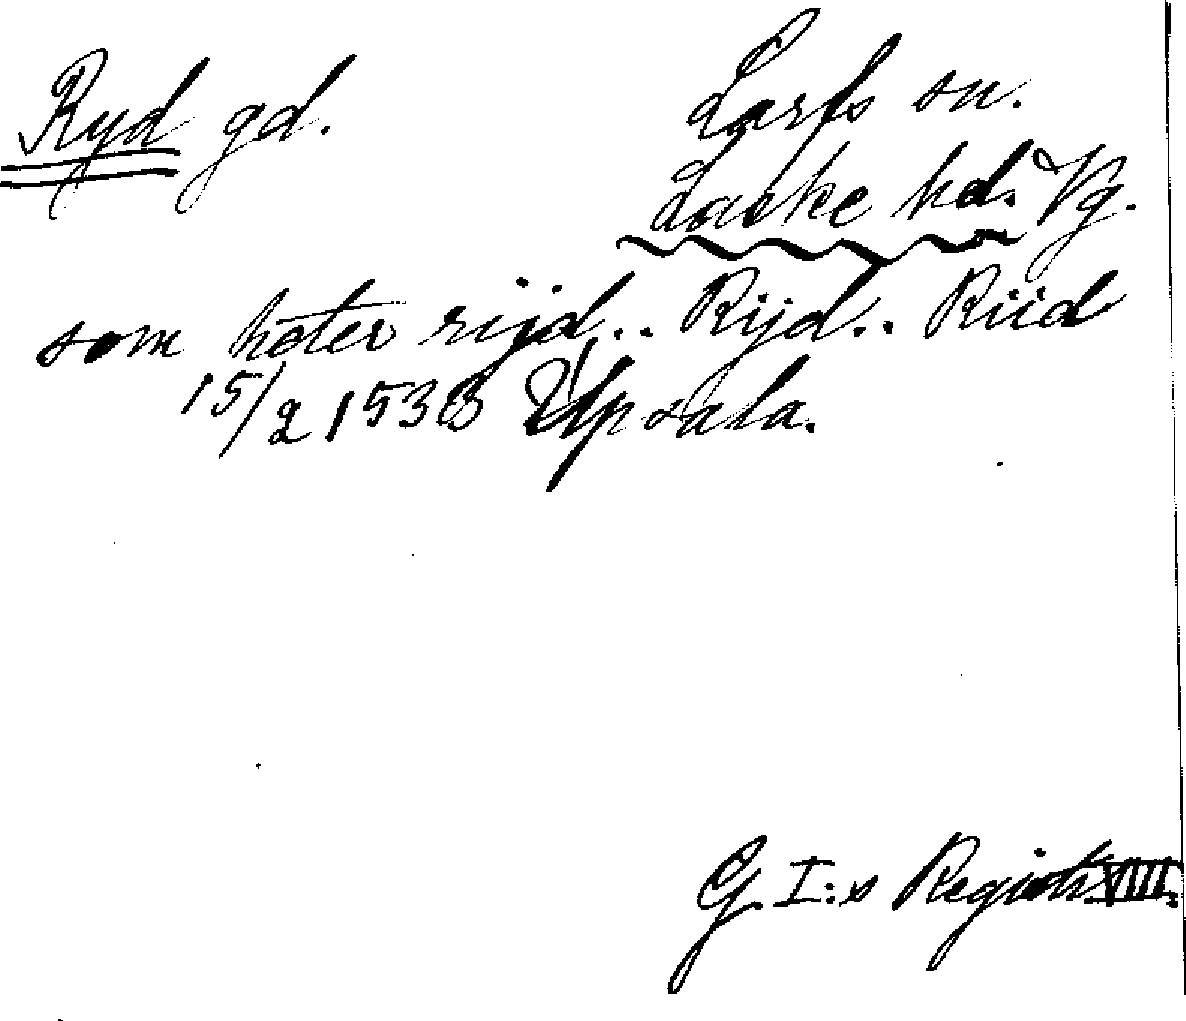 Ryd gd. Larfs sn.
Laske hd. Vg.
som hoter rijd.. Rijd.. Riid
15/2 1538 Upsala.
G. I:s Registr. VIII.